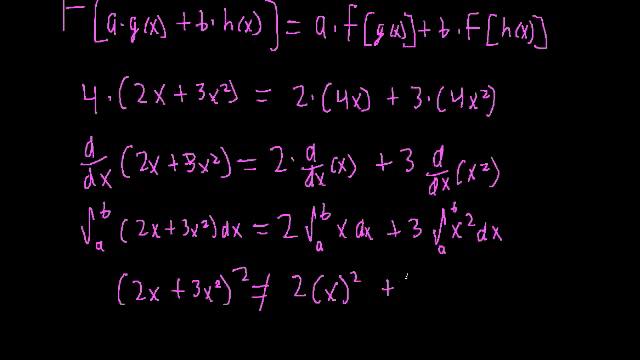 F[a·g(x) + b·h(x)] = a·F[g(x)] + b·F[h(x)]
4·(2x + 3x²) = 2·(4x) + 3·(4x²)
d/dx (2x + 3x²) = 2·d/dx(x) + 3 d/dx(x²)
∫ₐᵇ (2x + 3x²)dx = 2∫ₐᵇ x dx + 3∫ₐᵇ x² dx
(2x + 3x²)² ≠ 2(x)² +